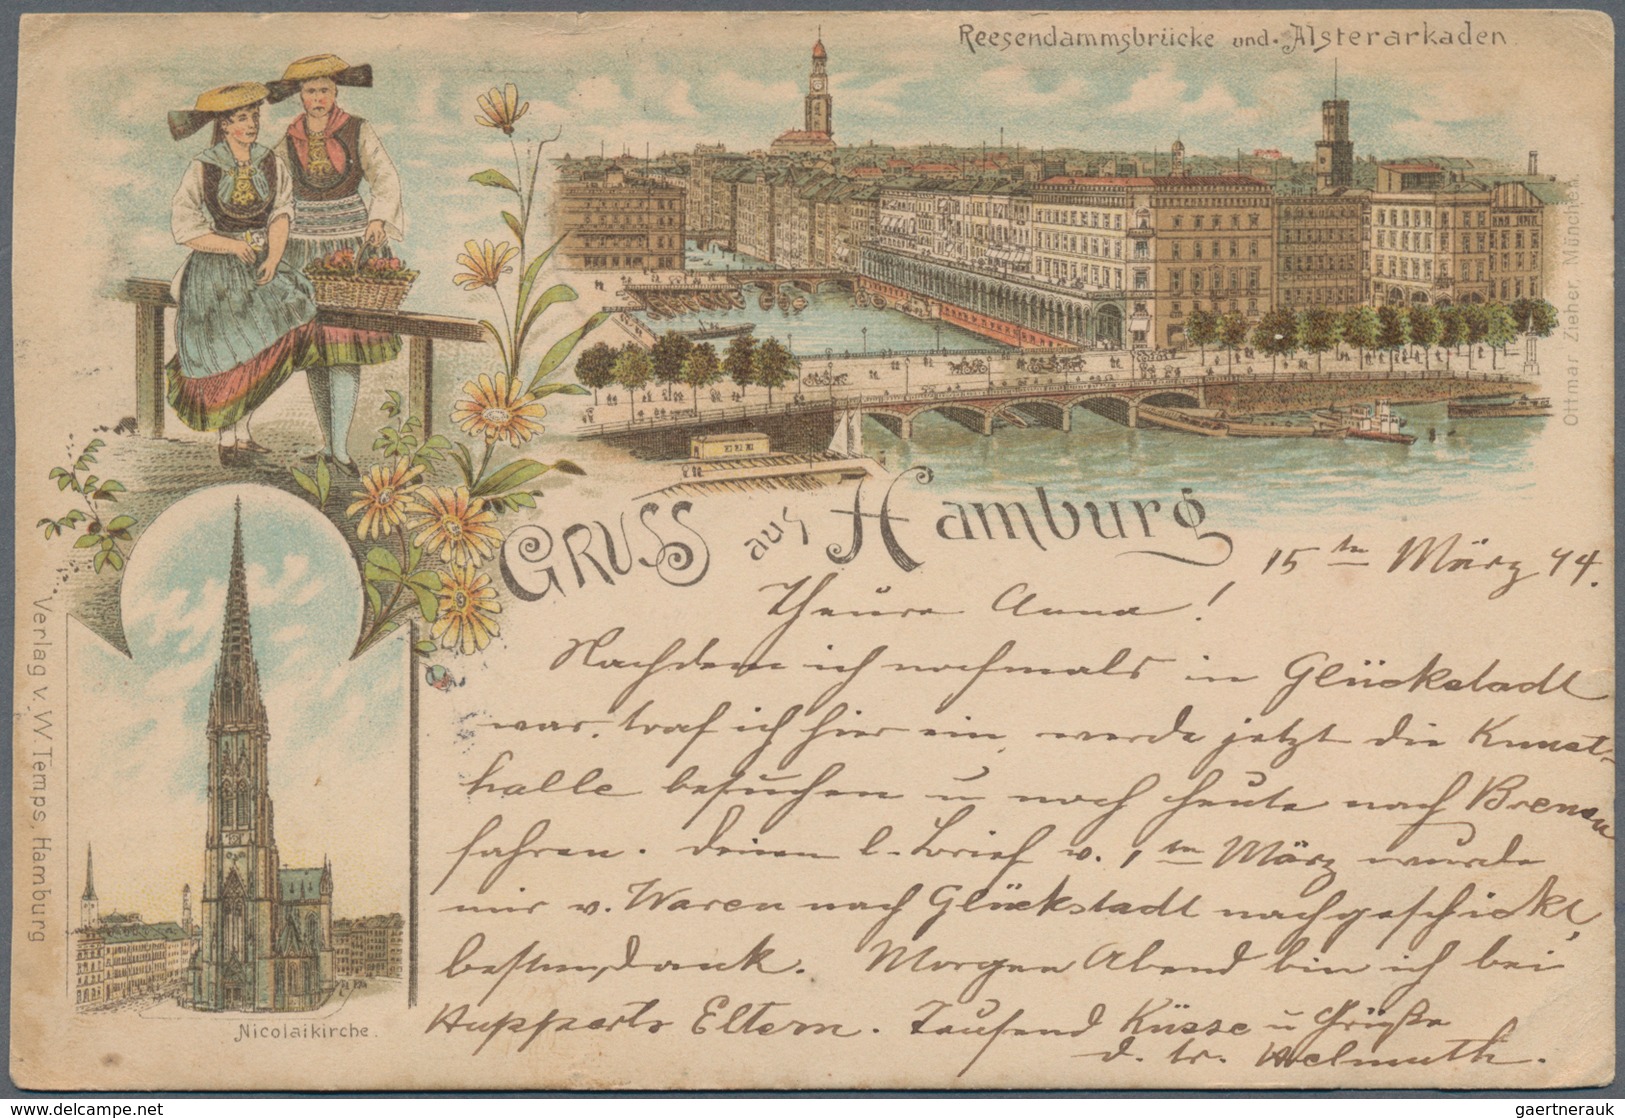 Reesendammsbrücke und Alsterarkaden
Ottmar Zieher, München.
GRUSS aus Hamburg
15ten März 94.
Theure Anna!
Nachdem ich nochmals in Glückstadt
war, traf ich hier ein, werde jetzt die Kunst-
halle besuchen u noch heute nach Bremen
fahren. Deinen l. Brief v. 1ten März wurde
mir v. Waren nach Glückstadt nachgeschickt,
besten Dank. Morgen Abend bin ich bei
Eltern. Tausend Küsse u Grüße
d. tr. Helmuth.
Verlag v. W. Temps, Hamburg
Nicolaikirche.
© www.delcampe.net
gaertnerauk